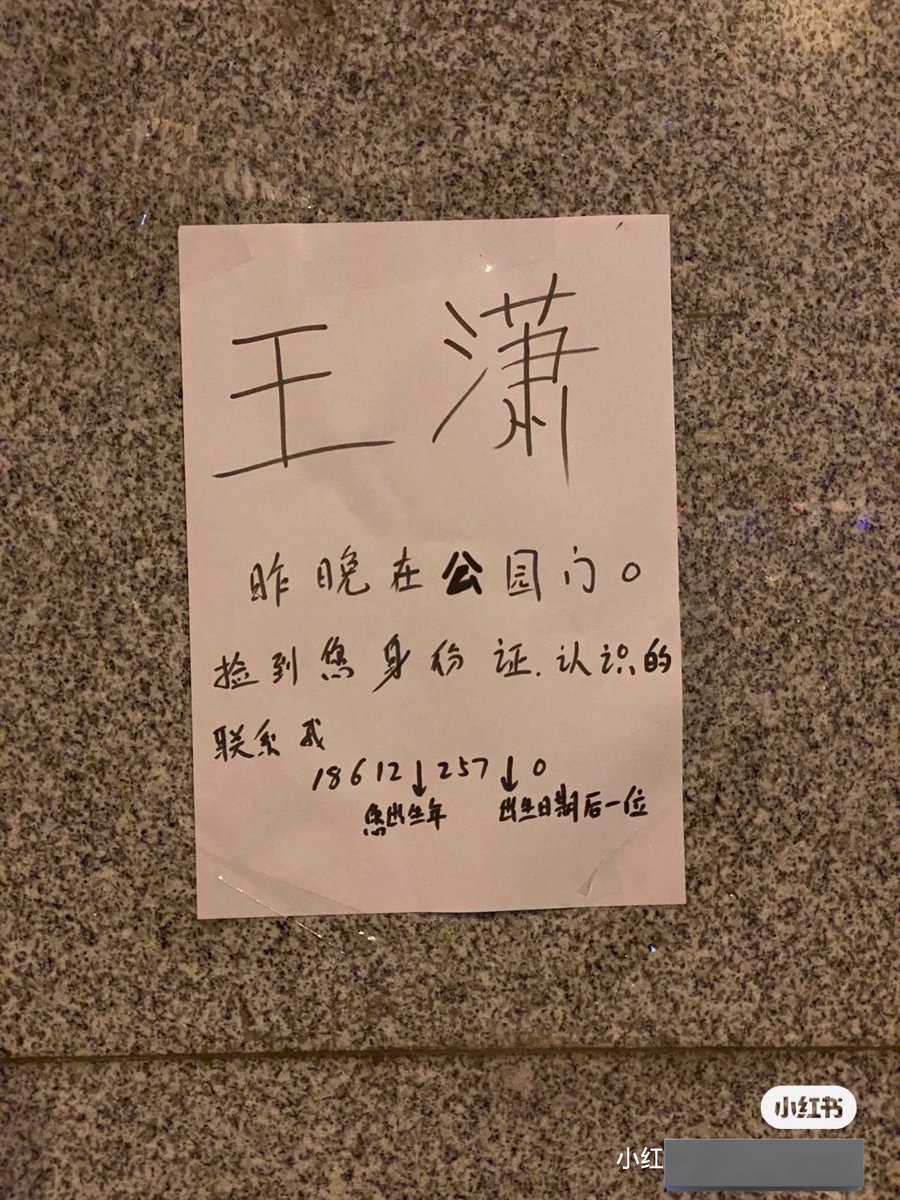 王潇
昨晚在公园门口
捡到您身份证.认识的
联系我
18612↓257↓0
您出生年 出生日期后一位
小红书
小红